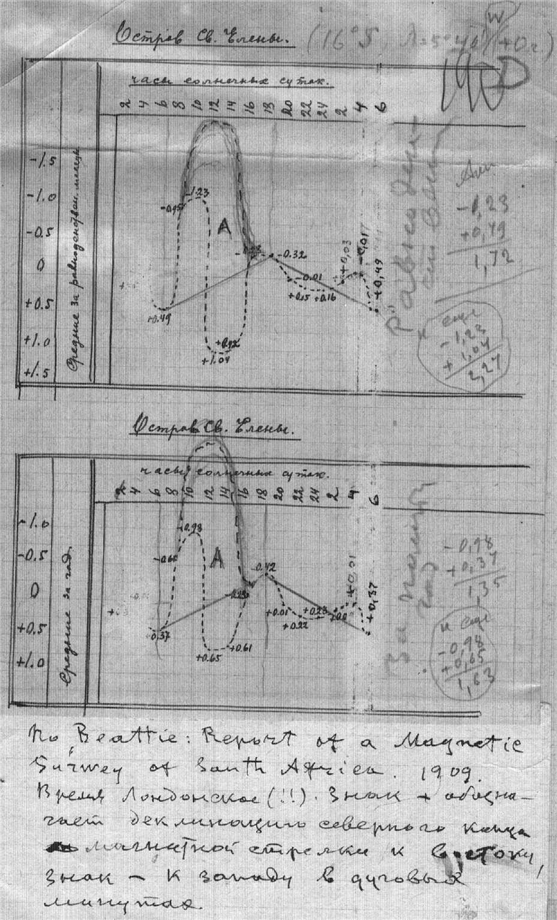 Остров Св. Елены. (16°S, λ=5°40' W (+0ч.)
часы солнечных суток.
2 4 6 8 10 12 14 16 18 20 22 24 2 4 6
Средние за равноденств. месяцы
-1.5
-1.0
-0.5
0
+0.5
+1.0
+1.5
-1.23
A
-0.32
+0.03
-0.01
-0.01
+0.15 +0.16
+0.49
+0.49
+1.04
Равноден-
Амп
-1,23
+0,49
1,72
и еще
-1,23
+1,04
2,27
Остров Св. Елены.
часы солнечных суток.
2 4 6 8 10 12 14 16 18 20 22 24 2 4 6
Средние за год.
-1.0
-0.5
0
+0.5
+1.0
-0.98
A
-0.42
+0.01
+0.01
+0.22
+0.23
+0.37
-0.37
+0.65
+0.61
За полный
год
-0,98
+0,37
1,35
и еще
-0,98
+0,65
1,63
По Beattie: Report of a Magnetic
Survey of South Africa. 1909.
Время Лондонское (!!). Знак + обозна-
чает деклинацию северного конца
магнитной стрелки к востоку,
знак – к западу в дуговых
минутах.